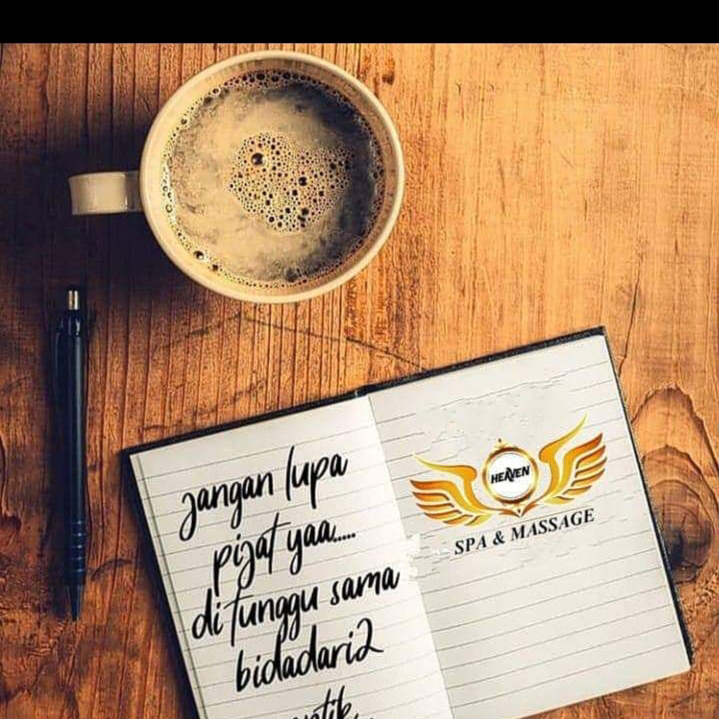 jangan lupa
pijat yaa.....
di tunggu sama
bidadari2
HEAVEN
SPA & MASSAGE